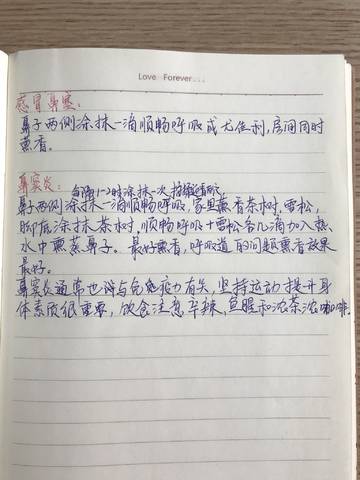 Love Forever...
感冒鼻塞:
鼻子两侧涂抹一滴顺畅呼吸或尤佳利,房间同时
熏香。
鼻窦炎: 每隔1-2时涂抹一次
鼻子两侧涂抹一滴顺畅呼吸,家里熏香茶树,雪松,
脚底涂抹茶树,顺畅呼吸+雪松各几滴加入热
水中熏蒸鼻子。最好熏香,呼吸道的问题熏香效果
最好。
鼻窦炎通常也许与免疫力有关,坚持运动提升身
体素质很重要,饮食注意辛辣,鱼腥和浓茶浓咖啡.